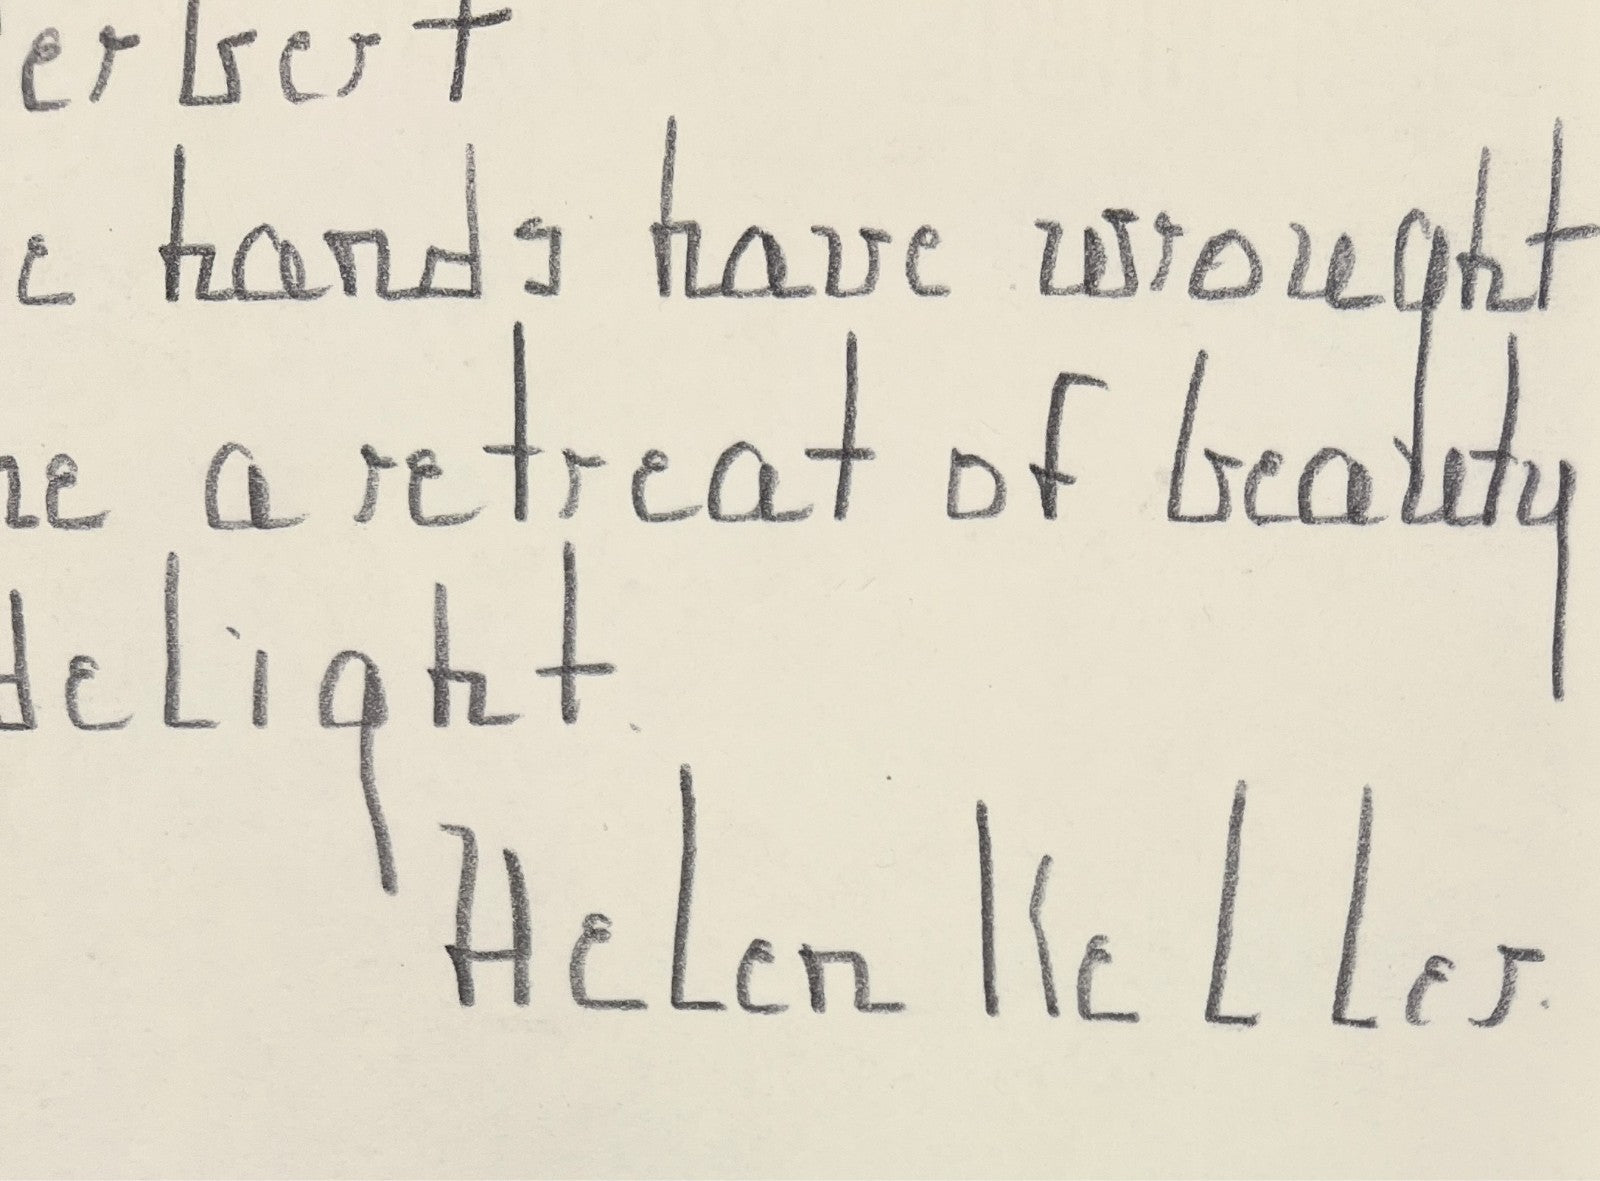 erbert
e hands have wrought
ne a retreat of beauty
delight.
Helen Keller.